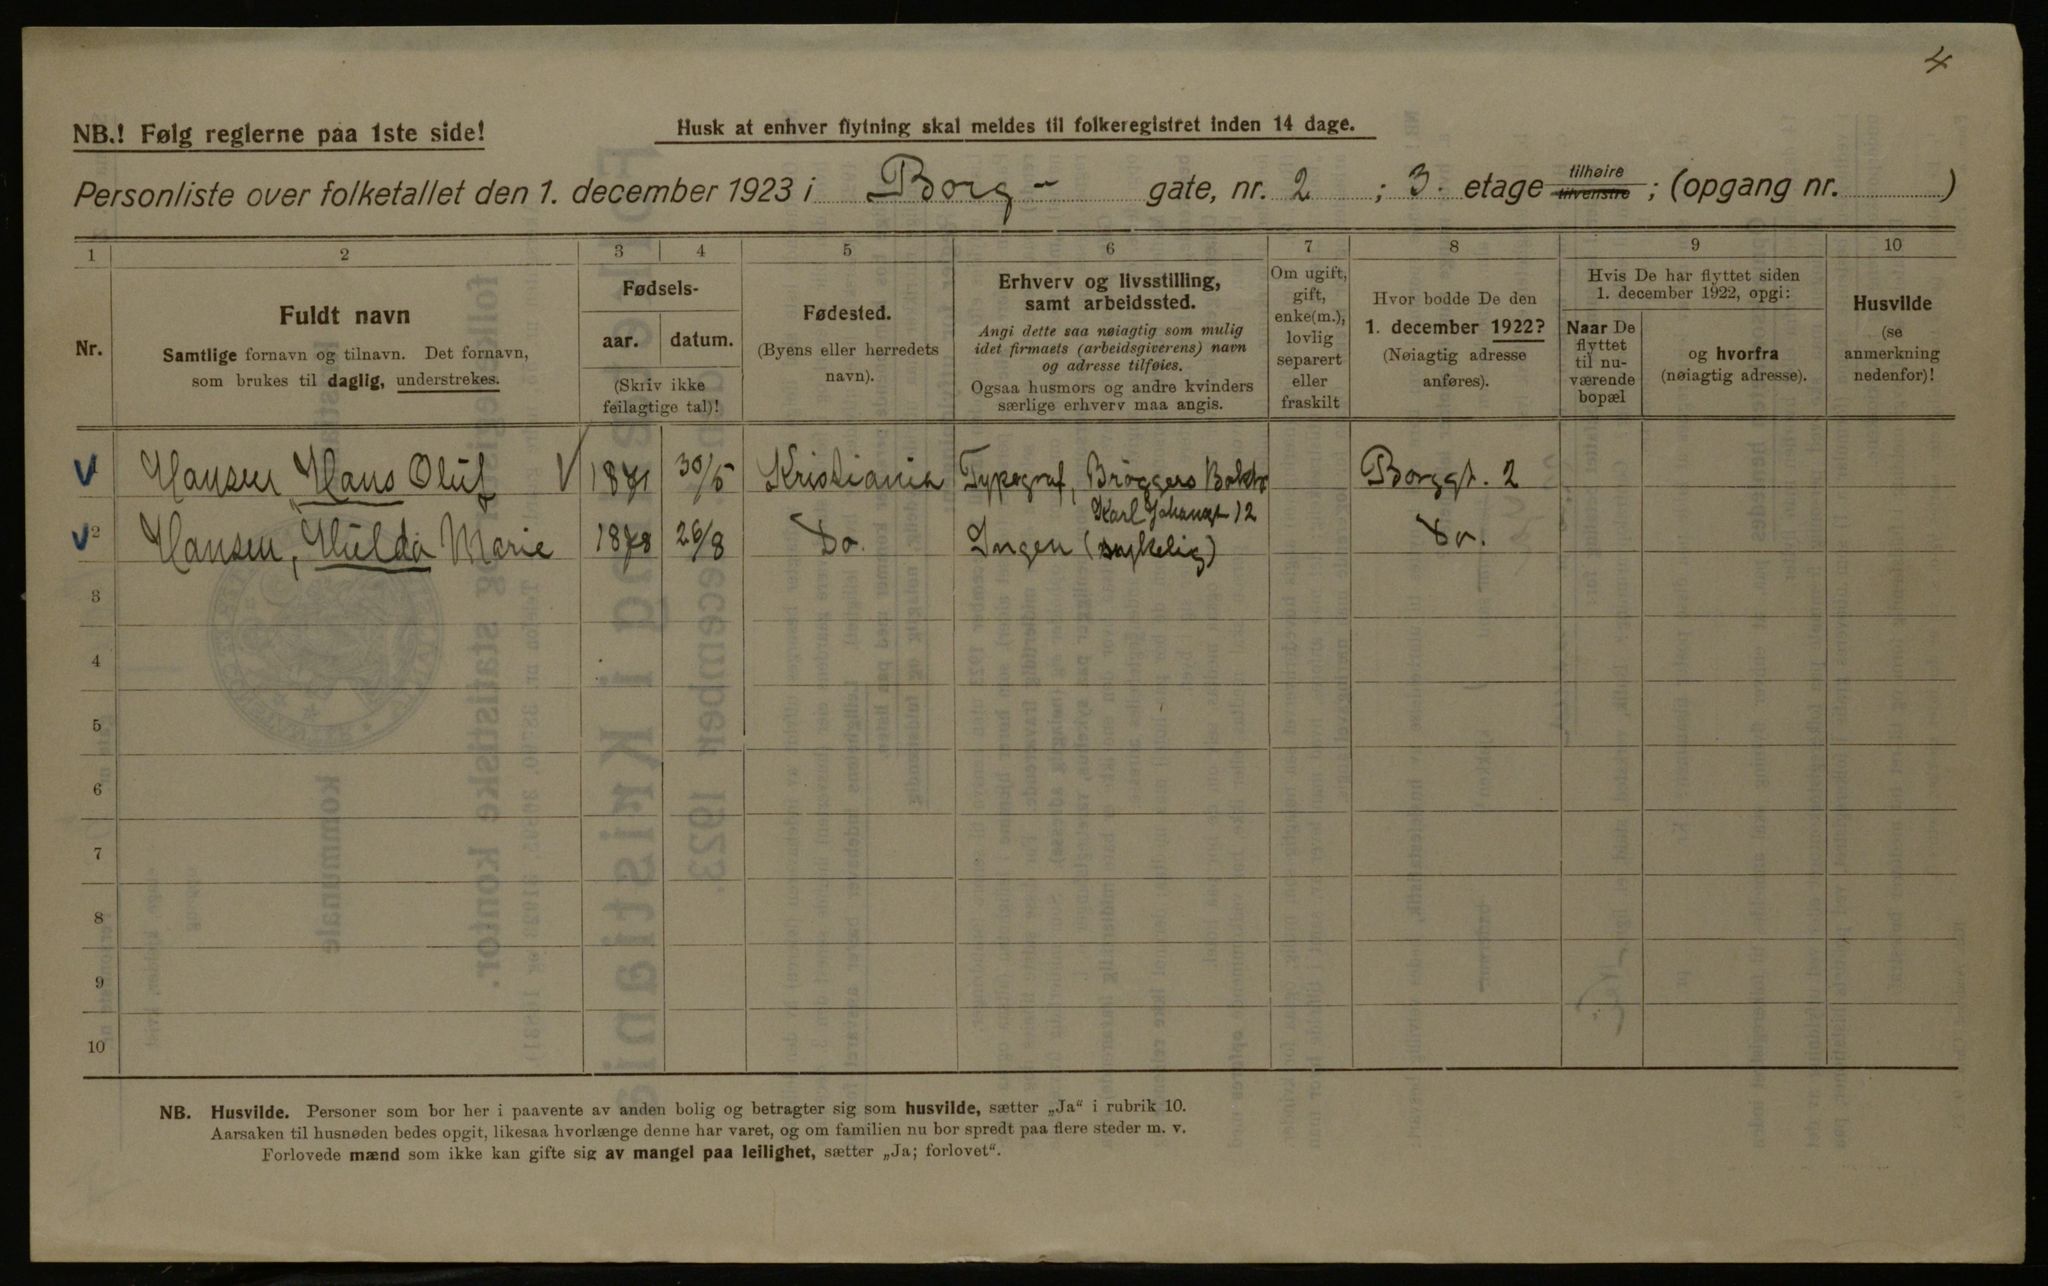 4
NB.! Følg reglerne paa 1ste side!
Husk at enhver flytning skal meldes til folkeregistret inden 14 dage.
Personliste over folketallet den 1. december 1923 i Borg- gate, nr. 2 ; 3. etage tilhøire tilvenstre ; (opgang nr. )
1 2 3 4 5 6 7 8 9 10
Nr.
Fuldt navn
Samtlige fornavn og tilnavn. Det fornavn,
som brukes til daglig, understrekes.
Fødsels-
aar. datum.
(Skriv ikke
feilagtige tal)!
Fødested.
(Byens eller herredets
navn).
Erhverv og livsstilling,
samt arbeidssted.
Angi dette saa nøiagtig som mulig
idet firmaets (arbeidsgiverens) navn
og adresse tilføies.
Ogsaa husmors og andre kvinders
særlige erhverv maa angis.
Om ugift,
gift,
enke(m.),
lovlig
separert
eller
fraskilt
Hvor bodde De den
1. december 1922?
(Nøiagtig adresse
anføres).
Hvis De har flyttet siden
1. december 1922, opgi:
Naar De
flyttet
til nu-
værende
bopæl
og hvorfra
(nøiagtig adresse).
Husvilde
(se
anmerkning
nedenfor)!
1 Hansen, Hans Oluf V 1871 30/5 Kristiania Typograf, Brøggers Boktr Borggt. 2
Karl Johansgt 12
2 Hansen, Hulda Marie 1878 26/8 Do. Ingen (sykelig) Do.
3
4
5
6
7
8
9
10
NB. Husvilde. Personer som bor her i paavente av anden bolig og betragter sig som husvilde, sætter „Ja" i rubrik 10.
Aarsaken til husnøden bedes opgit, likesaa hvorlænge denne har varet, og om familien nu bor spredt paa flere steder m. v.
Forlovede mænd som ikke kan gifte sig av mangel paa leilighet, sætter „Ja; forlovet".